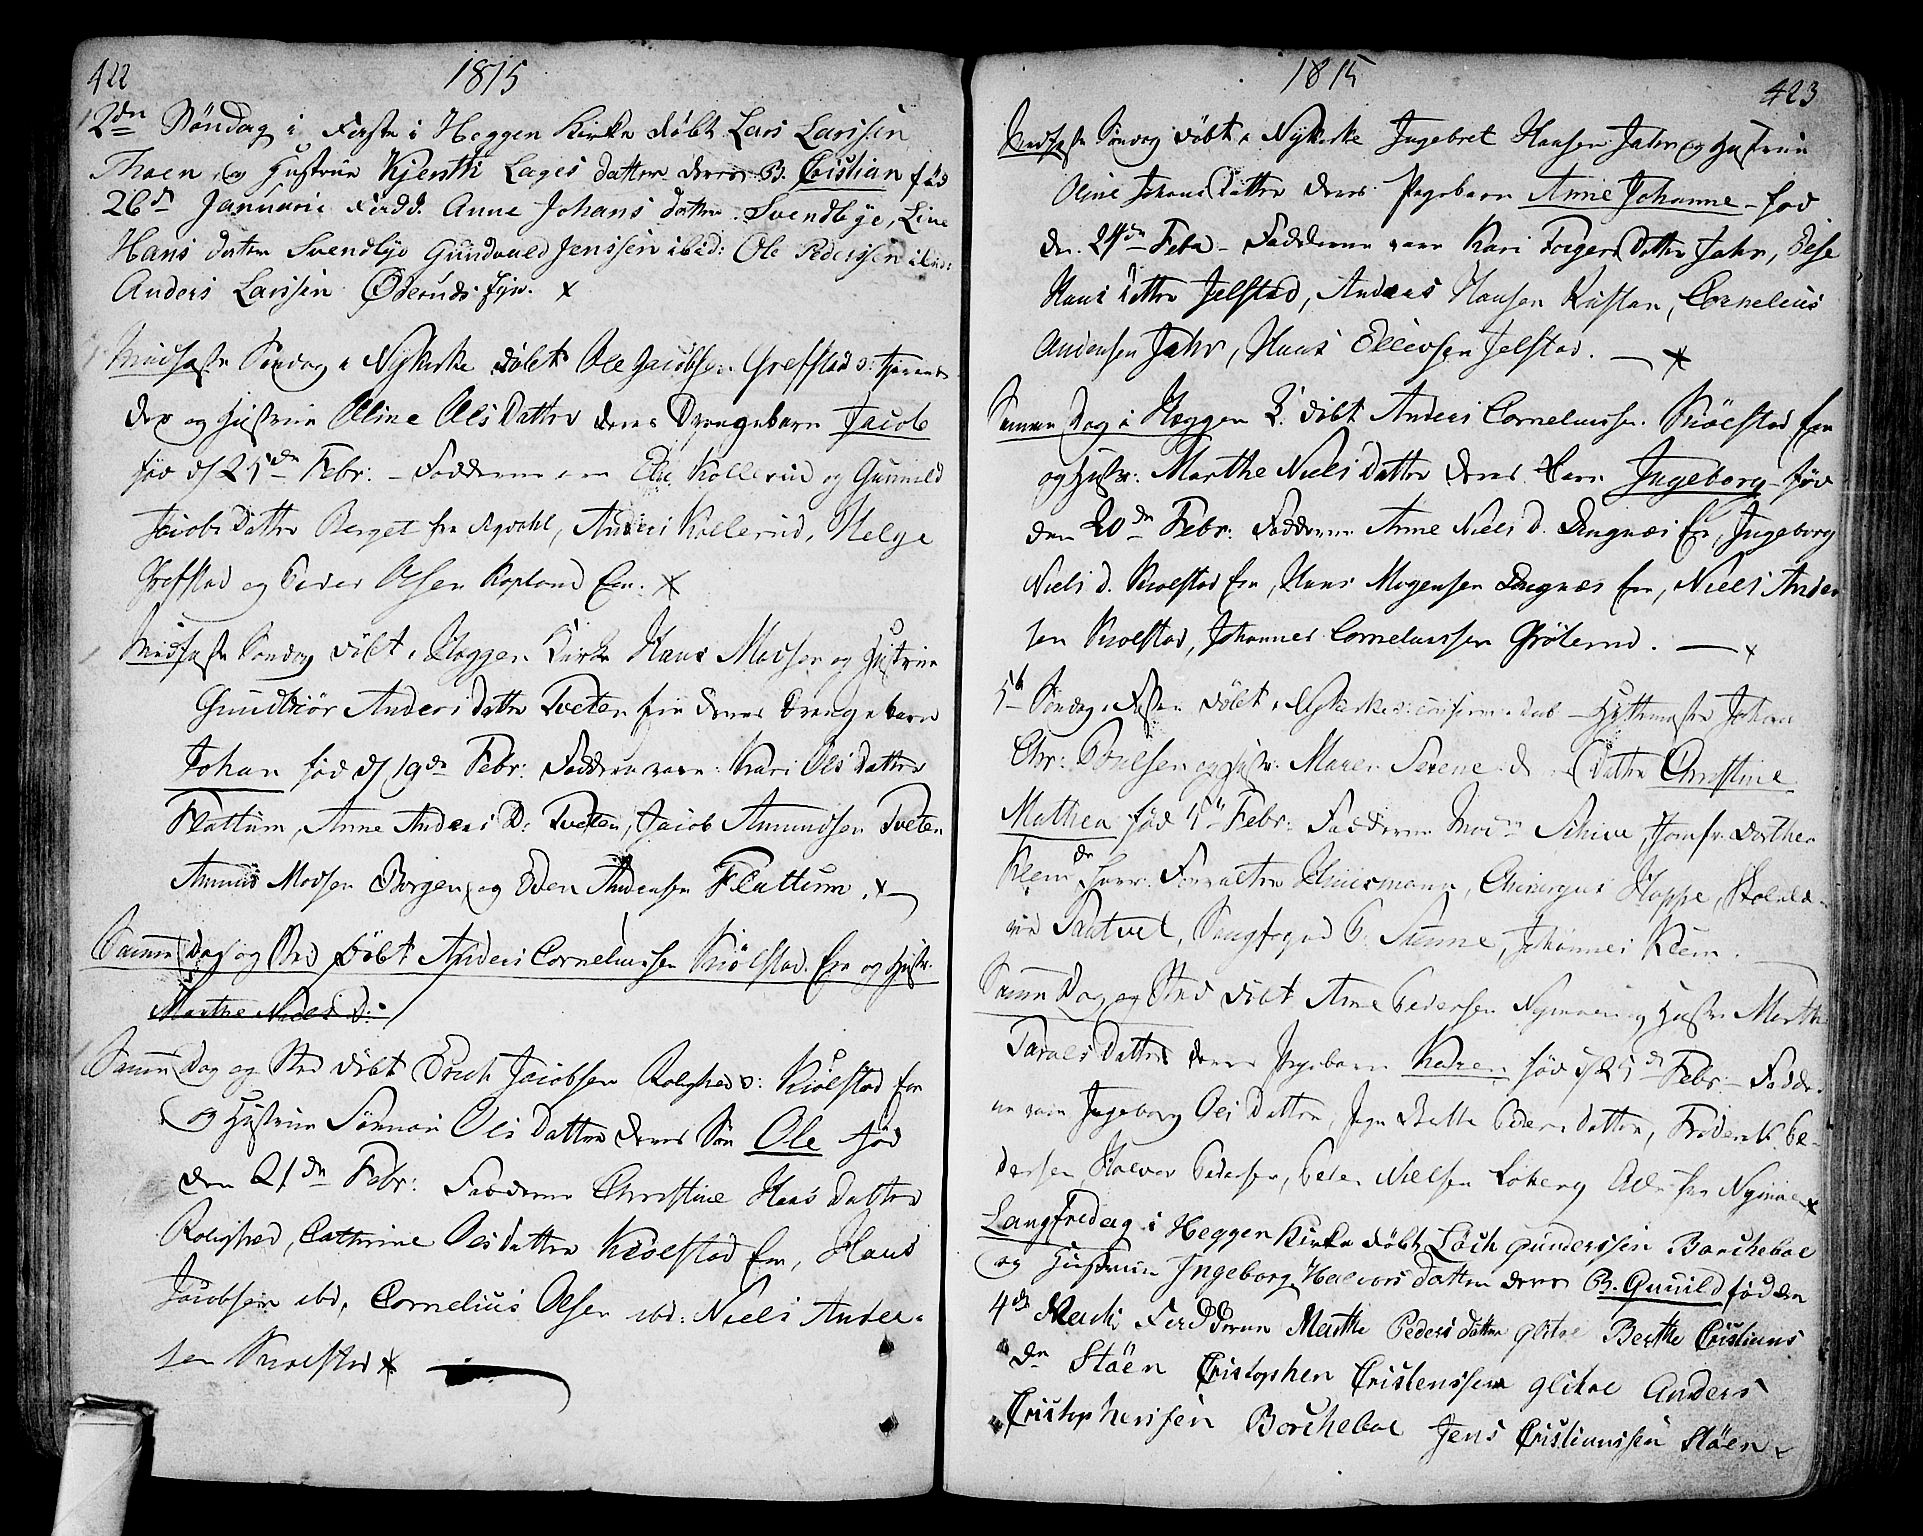 422
1815
2den Söndag i Faste i Heggen Kirke döbt Lars Larssen
Moen og Hustrue Kjersti Lages datter deres B. Cristian föd
26d Januarii Fadd. Anne Johans datter Svendbye, Line
Hans datter Svendbye Gundvald Jenssen ibid: Ole Pederssen ibid:
Anders Larssen Öderuds Eje. x
Midfaste Söndag i Nykirke döbt Ole Jacobsen Grefstad
og Hustrue Oline Ols Datter deres Drengebarn Jacob
föd d 25de Febr: – Fadderne Else Kollerud og Gunnild
Jacobs Datter Berget fra Sigdahl, Anders Kollerud, Helge
Grefstad og Peder Olsen Kopland Eie. x
Midfaste Söndag döbt i Heggen Kirke Hans Madsen og Hustrue
Gundbiör Anders datter Tveten Eie deres Drengebarn
Johan föd d 19de Febr: Fadderne vare: Kari Ols Datter
Flattum, Anne Anders D: Tveten, Jacob Amundsen Tveten
Amund Madsen Borgen, og Eden Andersen Flattum. x
Samme Dag og Sted döbt Anders Corneliussen Skiölstad Eie og Hustr.
Marthe Niels D:
Samme Dag og Sted döbt Erich Jacobsen Rolighed v: Skiolstad Eie
og Hustrue Sönnov Ols Datter deres Sön Ole föd
den 21de Febr: Fadderne Christine Hans Datter
Rolighed, Cathrine Ols datter Skiolstad Eie, Hans
Jacobsen ibd, Cornelius Olsen ibd: Niels Ander-
sen Skiolstad x
1815
423
Midfaste Söndag döbt i Nykirke Ingebret Hansen Jahr og Hustrue
Oline Johans Datter deres Pigebarn Anne Johanne – föd
den 24de Febr – Fadderne vare Kari Torgers Datter Jahr,
Hans datter Jelstad, Anders Hansen Kaastan, Cornelius
Andersen Jahr, Hans Ellevsen Jelstad. – x
Samme Dag i Heggen K. döbt Anders Corneliussen Skiölstad Eie
og Hustr: Marthe Niels Datter deres Barn Ingeborg föd
den 20de Febr: Fadderne Anne Niels D. Engnæs Eie, Ingeborg
Niels d. Skiolstad Eie, Hans Mogensen Engnæs Eie, Niels Ander
sen Skiolstad, Johannes Corneliussen Gröterud. – x
5te Söndag i Faste döbt i Nykirke Hyttemester Johan
Chr: Poulsen og Hustr: Maren Serene datter Christine
Mathea föd 5te Febr: Fadderne Mad: Schive, Jomfr. Dorthea
Klem, Herr Forvalter Huusmann, Chirurgus Hoppe,
Sautvet, Sangfoged Sunne, Johannes Klem.
Samme Dag og Sted döbt Arne Pedersen Nymoen og Hustr: Marthe
Taraldsdatter deres Pigebarn Karen föd d 25de Febr: – Fadder-
ne vare Ingeborg Ols Datter, Berthe Peders datter, Friderik Pe-
dersen, Halvor Pedersen, Peder Nielsen Loberg Alle fra Nymoe x
Langfredag i Heggen Kirke döbt Löch Gunderssen Borcheboe
og Hustrue Ingeborg Halvors datter deres B. Gunild föd den
4de Marti Fadderne Marthe Peders datter Glitre Berthe Cristians
dr Stöen Cristopher Cristenssen Glitre Anders
Cristopherssen Borcheboe Jens Cristianssen Stöen x